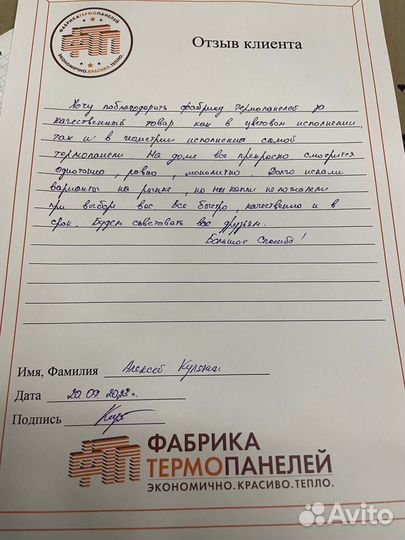 ФАБРИКА ТЕРМОПАНЕЛЕЙ
ФТП
ЭКОНОМИЧНО.КРАСИВО.ТЕПЛО.
Отзыв клиента
Хочу поблагодорить фабрику термопанелей за
качественный товар как в цветовом исполнении,
так и в геометрии исполнения самой
термопанели. На доме все прекрасно смотрится
однотонно, ровно, монолитно. Долго искали
варианты на рынке, но ни капли не пожалели
при выборе вас. Все быстро, качественно и в
срок. Будем советовать вас друзьям.
Большое спасибо!
Имя, Фамилия Алексей
Дата 20.07.2023 г.
Подпись
ФТП
ФАБРИКА
ТЕРМОПАНЕЛЕЙ
ЭКОНОМИЧНО.КРАСИВО.ТЕПЛО.
Avito